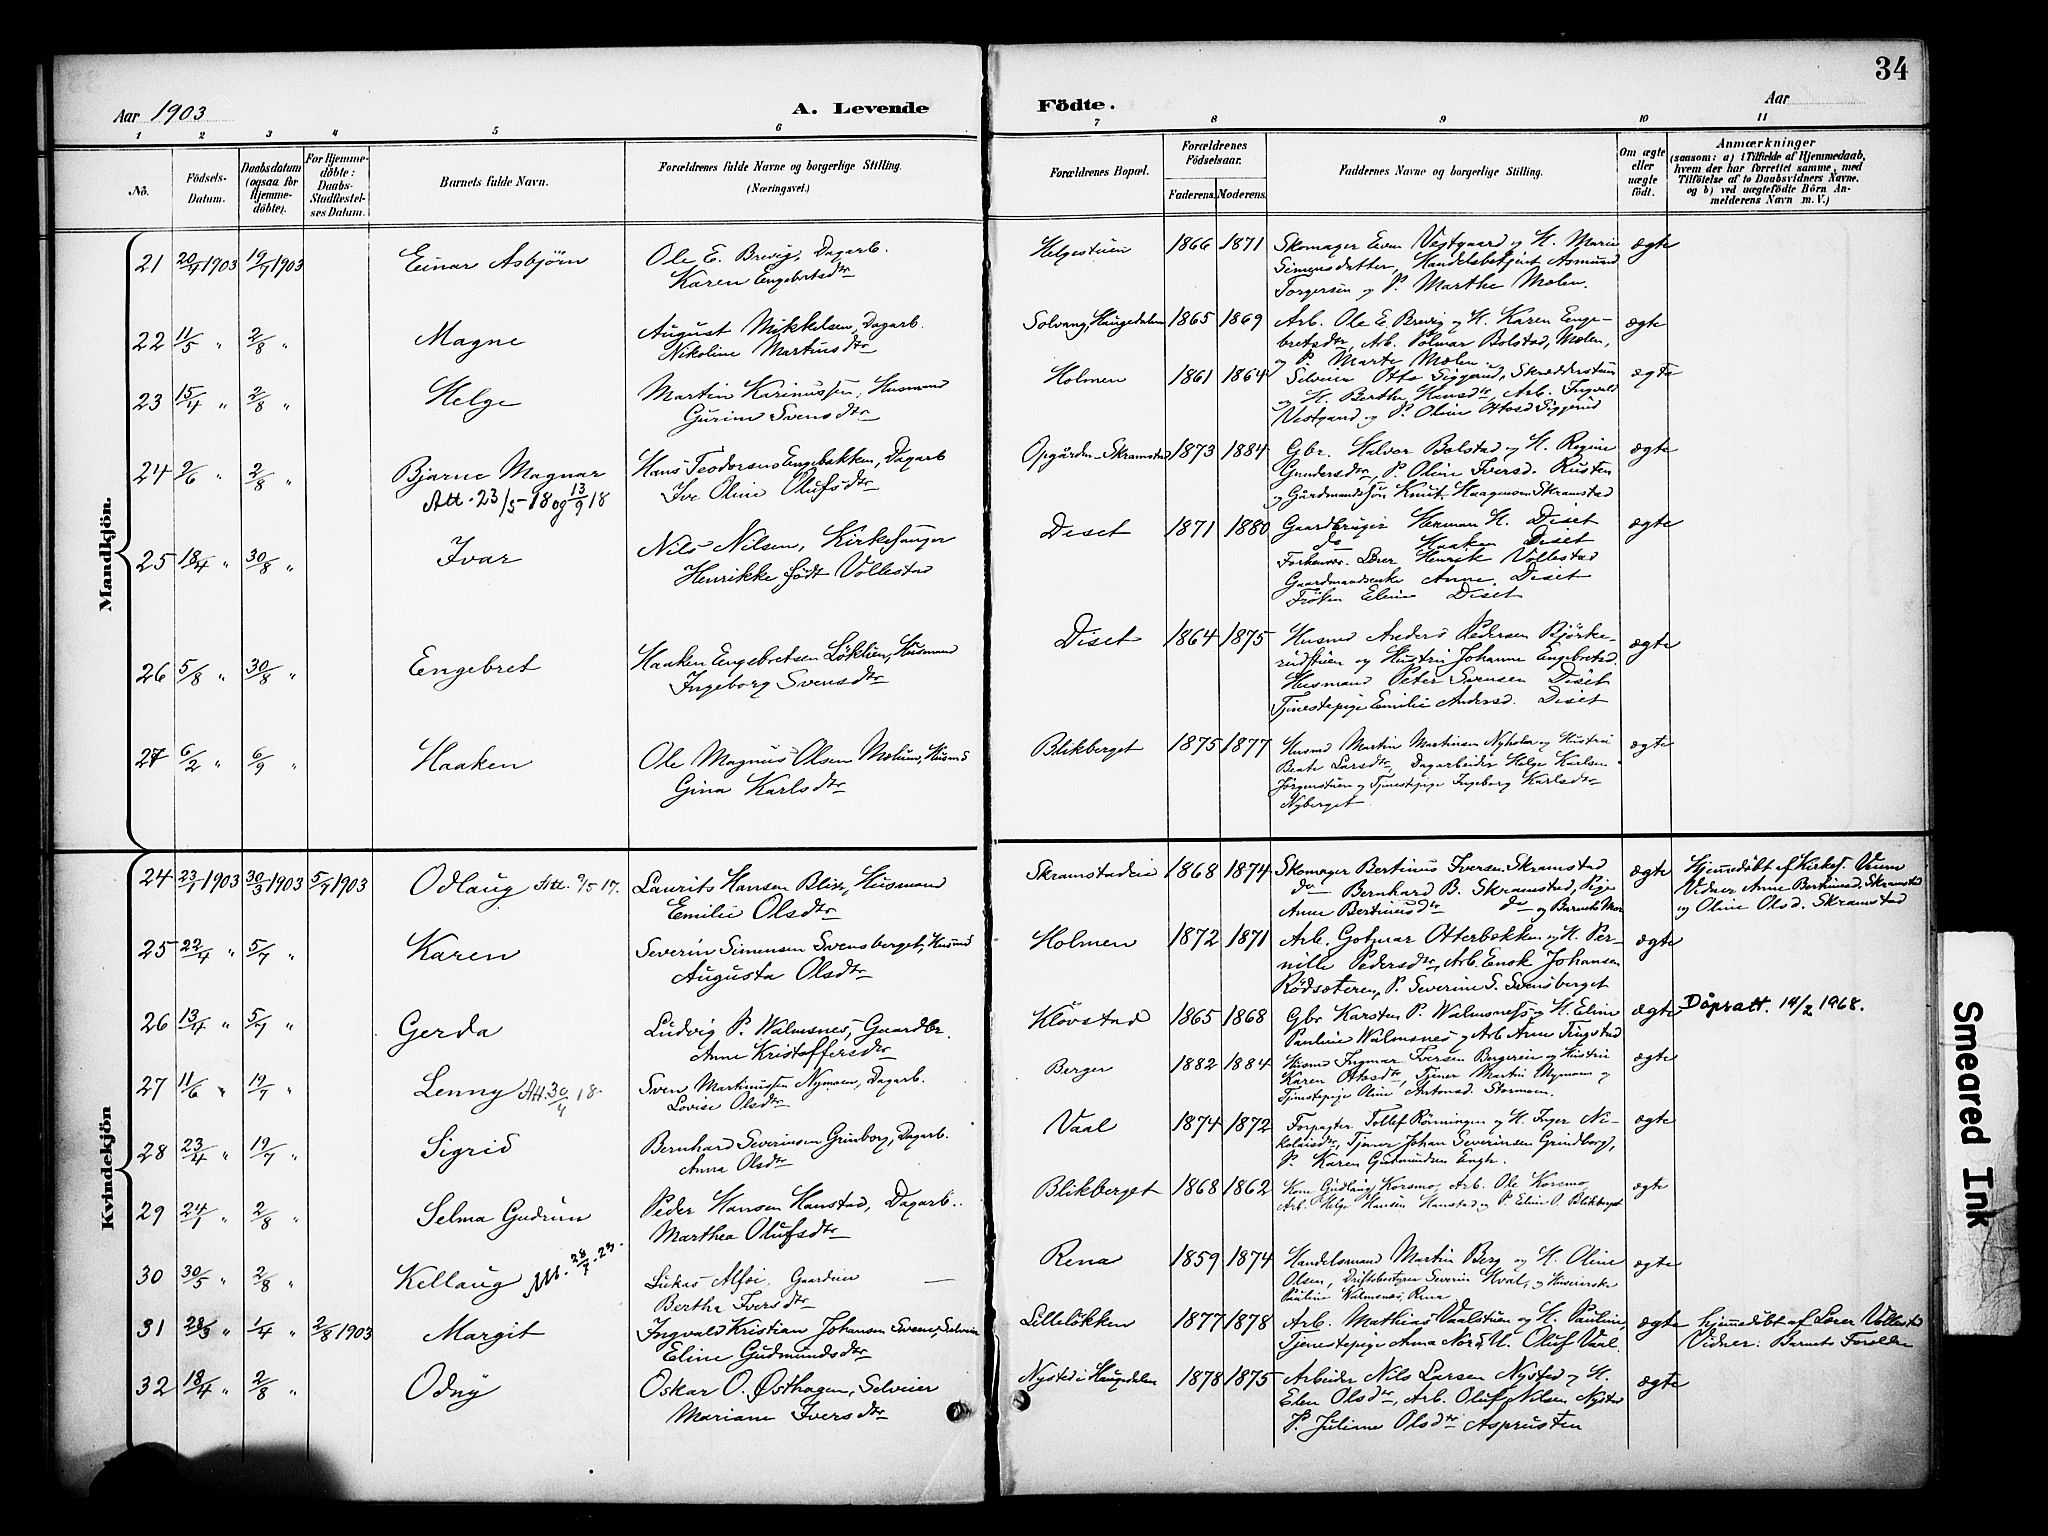 34
Aar 1903
A. Levende Födte.
Aar
1 2 3 4 5 6 7 8 9 10 11
No.
Födsels-Datum.
Daabsdatum (ogsaa for Hjemmedöbte).
For Hjemmedöbte: Daabs-Stadfæstelses Datum.
Barnets fulde Navn.
Forældrenes fulde Navne og borgerlige Stilling. (Næringsvei.)
Forældrenes Bopæl.
Forældrenes Födselsaar.
Faderens. Moderens.
Faddernes Navne og borgerlige Stilling.
Om ægte eller uægte födt.
Anmærkninger
(saasom: a) i Tilfælde af Hjemmedaab, hvem der har forrettet samme, med Tilföielse af to Daabsvidners Navne. og b) ved uægtefödte Börn Anmelderens Navn m. V.)
Mandkjön.
21 20/4 1903 19/7 1903 Einar Asbjörn
Ole E. Brevig, Dagarb.
Karen Engebretsdtr
Helgestuen 1866 1871
Skomager Even Vestgaard og H. Marie
Simensdatter, Handelsbetjent Asmund
Torgersen og P. Marthe Mælen.
ægte
22 11/5 " 2/8 " Magne
August Mikkelsen, Dagarb.
Nikoline Martinsdtr
Solvang, Haugedalen 1865 1869
Arb. Ole E. Brevig og H. Karen Enge-
bretsdtr, Arb. Polmar Bolstad, Mælen,
og P. Marte Mælen.
ægte
23 15/4 " 2/8 " Helge
Martin Karinussen, Husmand
Gurine Svensdtr
Holmen 1861 1864
Selveier Otto Siggerud, Skrædderstuen
og H. Berthe Hansdtr, Arb. Ingvald
Vestgaard og P. Oline Ottosd Siggerud
ægte
24 2/6 " 2/8 " Bjarne Magnar
Att. 23/5-18 og 13/9 18
Hans Teodorsens Engebakken, Dagarb
Ive Oline Olufsdtr
Opgården-Skramstad 1873 1884
Gbr. Halvor Bolstad og H. Regine
Gundersdtr, P. Oline Iversd. Rusten
og Gårdmandssøn Knut Haagensen Skramstad
ægte
25 18/4 " 30/8 " Ivar
Nils Nilsen, Kirkesanger
Henrikke født Vollestad
Diset 1871 1880
Gaardbruger Herman H. Diset
do Haaken Diset
Lærer Henrik Vollestad
Gaardmandsenke Anne Diset
Frøken Eline Diset
ægte
26 5/8 " 30/8 " Engebret
Haaken Engebretsen Løklien, Husmand
Ingeborg Svensdtr
Diset 1864 1875
Husmd Anders Pedersen Bjørke-
rudstuen og Hustru Johanne Engebretsd.
Husmand Peter Svensen Diset
Tjenestepige Emilie Andersd. Diset
ægte
27 6/2 " 6/9 " Haaken
Ole Magnus Olsen Mælum, Husmd
Gina Karlsdtr
Blikberget 1875 1877
Husmd Martin Martinsen Nyholm og Hustru
Beate Larsdtr, Dagarbeider Helge Karlsen
Jørgenstuen og Tjenestepige Ingeborg Karlsdtr
Nyberget.
ægte
Kvindekjön
24 23/1 1903 30/3 1903 5/7 1903 Odlaug Att. 9/5 17.
Laurits Hansen Blixr, Husmand
Emilie Olsdtr
Skramstadeie 1868 1874
Skomager Bertinus Iversen Skramstad
do Bernhard B. Skramstad, Pige
Anne Bertinusdtr do og Barnets Mor
ægte
Hjemmedöbt af Kirkes. Veum
Vidner Anne Bertinusd. Skramstad
og Oline Olsd. Skramstad
25 22/4 " 5/7 " Karen
Severin Simensen Svensberget, Husmd
Augusta Olsdtr
Holmen 1872 1871
Arb. Gotmar Otterbekken og H. Per-
nille Pedersdtr, Arb. Enok Johansen
Rødsæteren, P. Severine S. Svensberget
ægte
26 13/4 " 5/7 " Gerda
Ludvig P. Walmsnes, Gaardbr.
Anne Kristoffersdtr
Kløvstad 1865 1868
Gbr Karsten P. Walmsnes og H. Eline
Pauline Walmsnes og Arb Arne Trugstad
ægte
Dåpsatt. 14/2 1968.
27 11/6 " 19/7 " Lenny Att. 30/4 18.
Sven Martinussen Nymoen, Dagarb.
Lovise Olsdtr
Berger 1882 1884
Husmd Ingmar Iversen Bergereie og Hustru
Karen Ottosdtr, Tjener Martin Nymoen og
Tjenestepige Oline Antonsd. Stormoen.
ægte
28 23/4 " 19/7 " Sigrid
Bernhard Severinsen Grinborg, Dagarb.
Anna Olsdtr
Vaal 1874 1872
Forpagter Tollef Rönningen og H. Inger Ni-
kolaisdtr, Tjener Johan Severinsen Grindborg,
P. Karen Gudmundsen Engh.
ægte
29 24/1 " 2/8 " Selma Gudrun
Peder Hansen Hanstad, Dagarb.
Marthea Olufsdtr
Blikberget 1868 1862
Kone Gudlaug Korsmo, Arb. Ole Korsmo,
Arb. Helge Hansen Hanstad og P. Eline O. Blikberget
ægte
30 30/5 " 2/8 " Kellaug Att. 28/7 23.
Lukas Alfei, Gaardeier
Bertha Iversdtr
Rena 1859 1874
Handelsmand Martin Berg og H. Oline
Olsen, Driftsbestyrer Severin Kval, og
Pauline Walmsnes, Rena
ægte
31 28/3 " 1/4 " 2/8 1903 Margit
Ingvald Kristian Johansen Sveen, Selveier
Eline Gudmundsdtr
Lilleløkken 1877 1878
Arb. Mathias Vaalstuen og H. Pauline,
Tjenestepige Anna Nord, U. Oluf Vaal.
ægte
hjemmedöbt af Lærer Vollestad
Vidner: Barnets Foreldre
32 18/4 " 2/8 " Odny
Oskar O. Østhagen, Selveier
Mariane Iversdtr
Nysted i Haugedalen 1878 1875
Arbeider Nils Larsen Nysted og H.
Elen Olsdtr, Arb. Oluf Nilsen Nysted
P. Juliane Olsdtr Asprusten
ægte
Smeared Ink